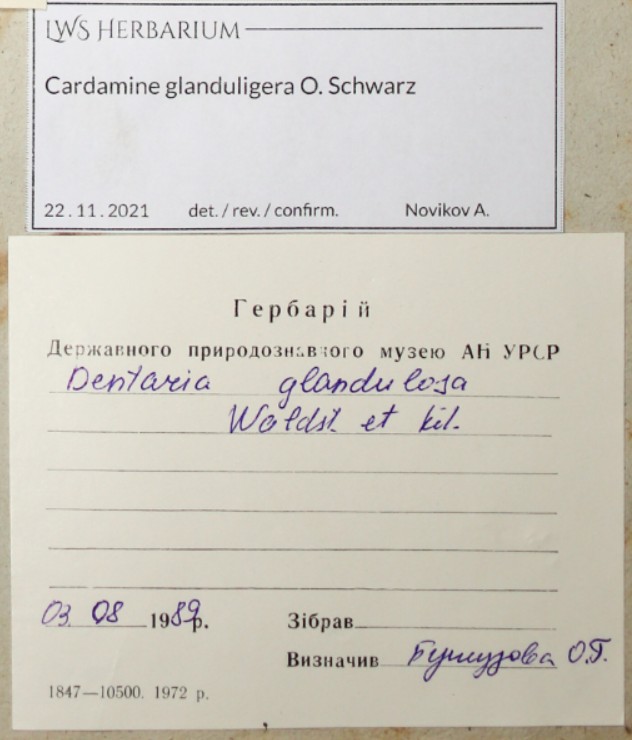 LWS HERBARIUM
Cardamine glanduligera O. Schwarz
22.11.2021 det. / rev. / confirm. Novikov A.
Гербарій
Державного природознавчого музею АН УРСР
Dentaria glandulosa
Waldst. et Kit.
03. 08 1989р.
Зібрав
Визначив О.Г.
1847—10500. 1972 р.